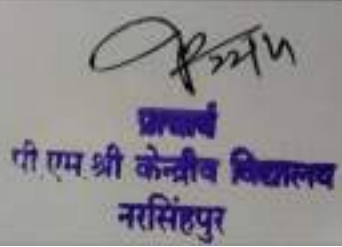 प्राचार्य
पी.एम.श्री केन्द्रीय विद्यालय
नरसिंहपुर